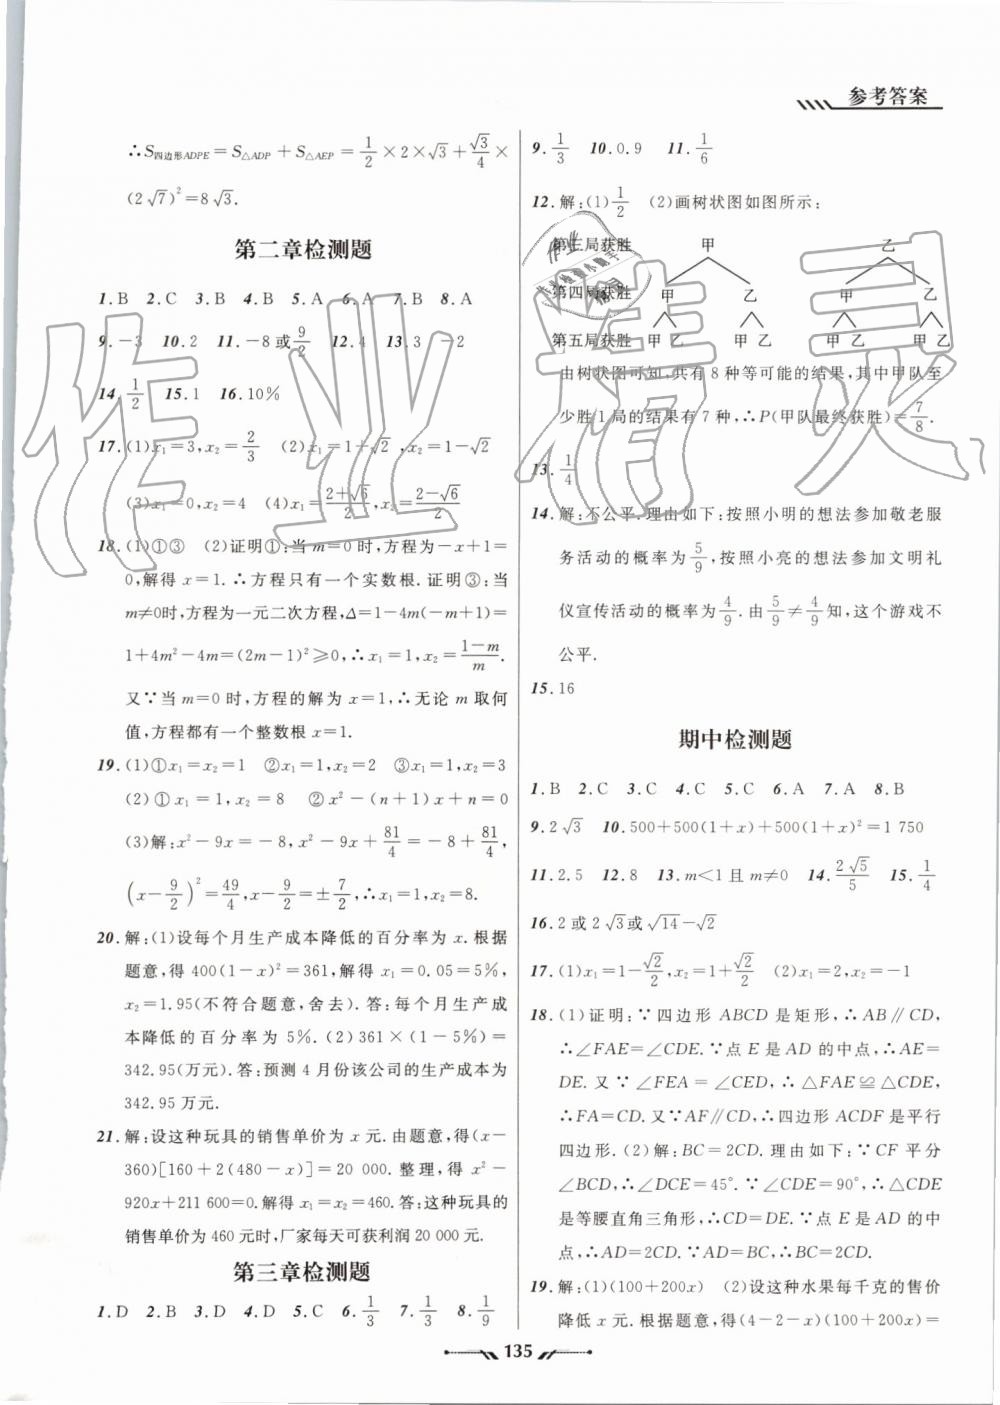 参考答案
∴S四边形ADPE=S△ADP+S△AEP=1/2×2×√3+√3/4×
(2√7)²=8√3.
第二章检测题
1.B 2.C 3.B 4.B 5.A 6.A 7.B 8.A
9.-3 10.2 11.-8或9/2 12.4 13.3 -2
14.1/2 15.1 16.10%
17.(1)x₁=3,x₂=2/3 (2)x₁=1+√2,x₂=1-√2
(3)x₁=0,x₂=4 (4)x₁=(2+√6)/2,x₂=(2-√6)/2
18.(1)①③ (2)证明①:当m=0时,方程为-x+1=
0,解得x=1.∴方程只有一个实数根.证明③:当
m≠0时,方程为一元二次方程,Δ=1-4m(-m+1)=
1+4m²-4m=(2m-1)²≥0,∴x₁=1,x₂=(1-m)/m.
又∵当m=0时,方程的解为x=1,∴无论m取何
值,方程都有一个整数根x=1.
19.(1)①x₁=x₂=1 ②x₁=1,x₂=2 ③x₁=1,x₂=3
(2)①x₁=1,x₂=8 ②x²-(n+1)x+n=0
(3)解:x²-9x=-8,x²-9x+81/4=-8+81/4,
(x-9/2)²=49/4,x-9/2=±7/2,∴x₁=1,x₂=8.
20.解:(1)设每个月生产成本降低的百分率为x.根据
题意,得400(1-x)²=361,解得x₁=0.05=5%,
x₂=1.95(不符合题意,舍去).答:每个月生产成
本降低的百分率为5%.(2)361×(1-5%)=
342.95(万元).答:预测4月份该公司的生产成本为
342.95万元.
21.解:设这种玩具的销售单价为x元.由题意,得(x-
360)[160+2(480-x)]=20 000.整理,得x²-
920x+211 600=0.解得x₁=x₂=460.答:这种玩具的
销售单价为460元时,厂家每天可获利润20 000元.
第三章检测题
1.D 2.B 3.D 4.D 5.C 6.1/3 7.1/3 8.1/9
9.1/3 10.0.9 11.1/6
12.解:(1)1/2 (2)画树状图如图所示:
第三局获胜 甲 乙
第四局获胜 甲 乙 甲 乙
第五局获胜 甲 乙 甲 乙 甲 乙 甲 乙
由树状图可知,共有8种等可能的结果,其中甲队至
少胜1局的结果有7种,∴P(甲队最终获胜)=7/8.
13.1/4
14.解:不公平.理由如下:按照小明的想法参加敬老服
务活动的概率为5/9,按照小亮的想法参加文明礼
仪宣传活动的概率为4/9.由5/9≠4/9知,这个游戏不
公平.
15.16
期中检测题
1.B 2.C 3.C 4.C 5.C 6.A 7.A 8.B
9.2√3 10.500+500(1+x)+500(1+x)²=1 750
11.2.5 12.8 13.m<1且m≠0 14.2√5/5 15.1/4
16.2或2√3或√14-√2
17.(1)x₁=1-√2/2,x₂=1+√2/2 (2)x₁=2,x₂=-1
18.(1)证明:∵四边形ABCD是矩形,∴AB∥CD,
∴∠FAE=∠CDE.∵点E是AD的中点,∴AE=
DE.又∵∠FEA=∠CED,∴△FAE≌△CDE,
∴FA=CD.又∵AF∥CD,∴四边形ACDF是平行
四边形.(2)解:BC=2CD.理由如下:∵CF平分
∠BCD,∴∠DCE=45°.∵∠CDE=90°,∴△CDE
是等腰直角三角形,∴CD=DE.∵点E是AD的中
点,∴AD=2CD.∵AD=BC,∴BC=2CD.
19.解:(1)(100+200x) (2)设这种水果每千克的售价
降低x元.根据题意,得(4-2-x)(100+200x)=
135
作业精灵